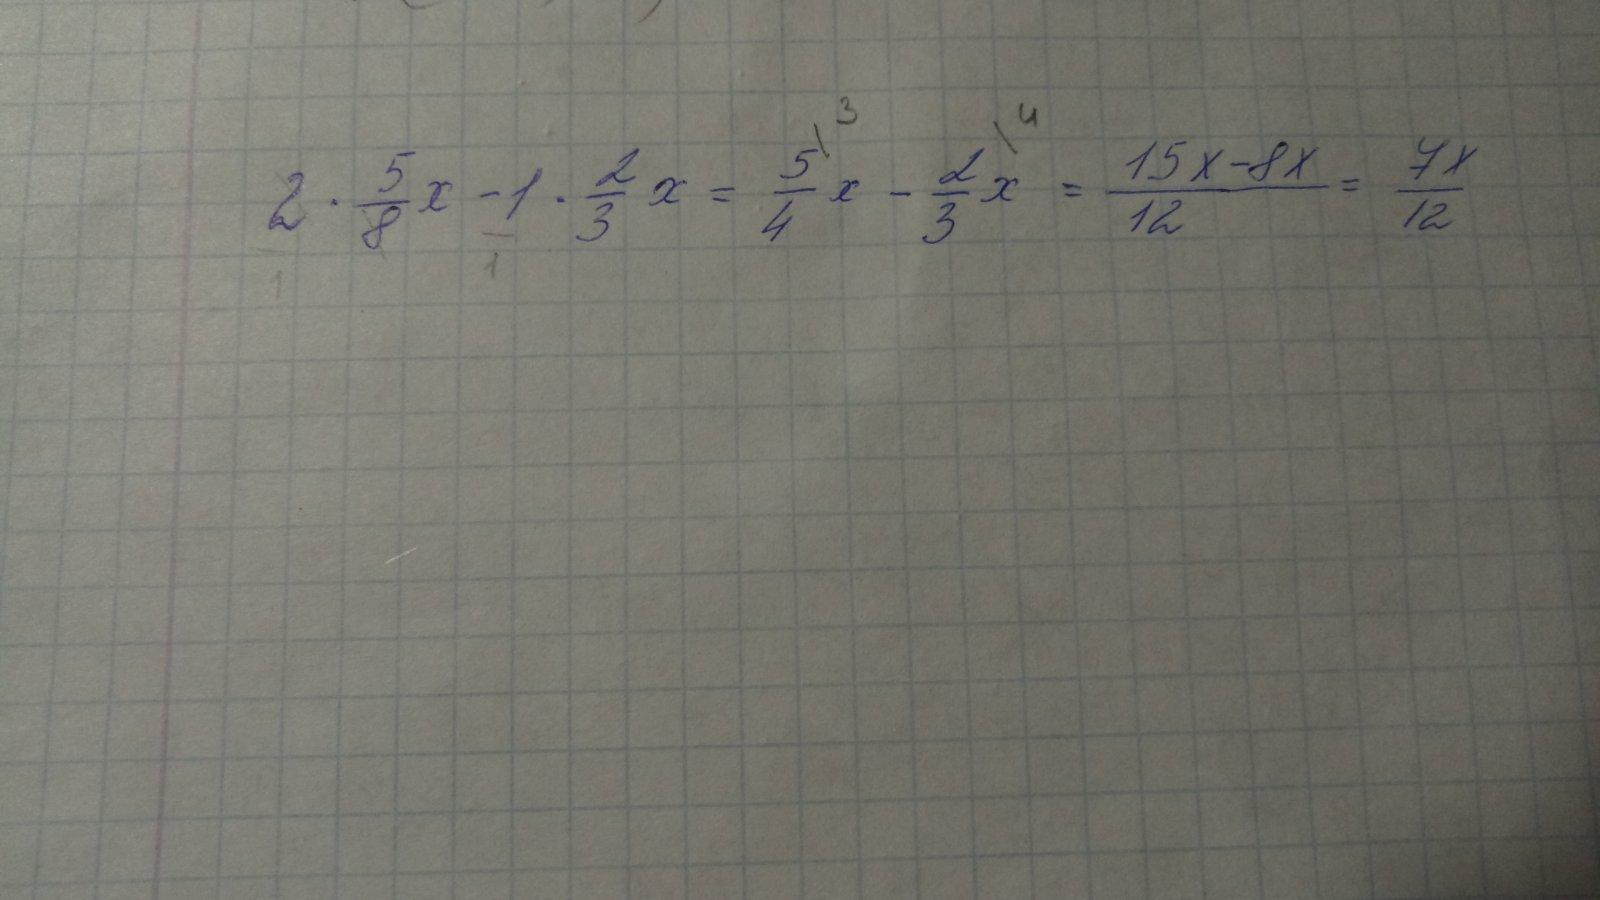 3 4
2 · 5/8 x - 1 · 2/3 x = 5/4 x - 2/3 x = 15x-8x/12 = 7x/12
1 1